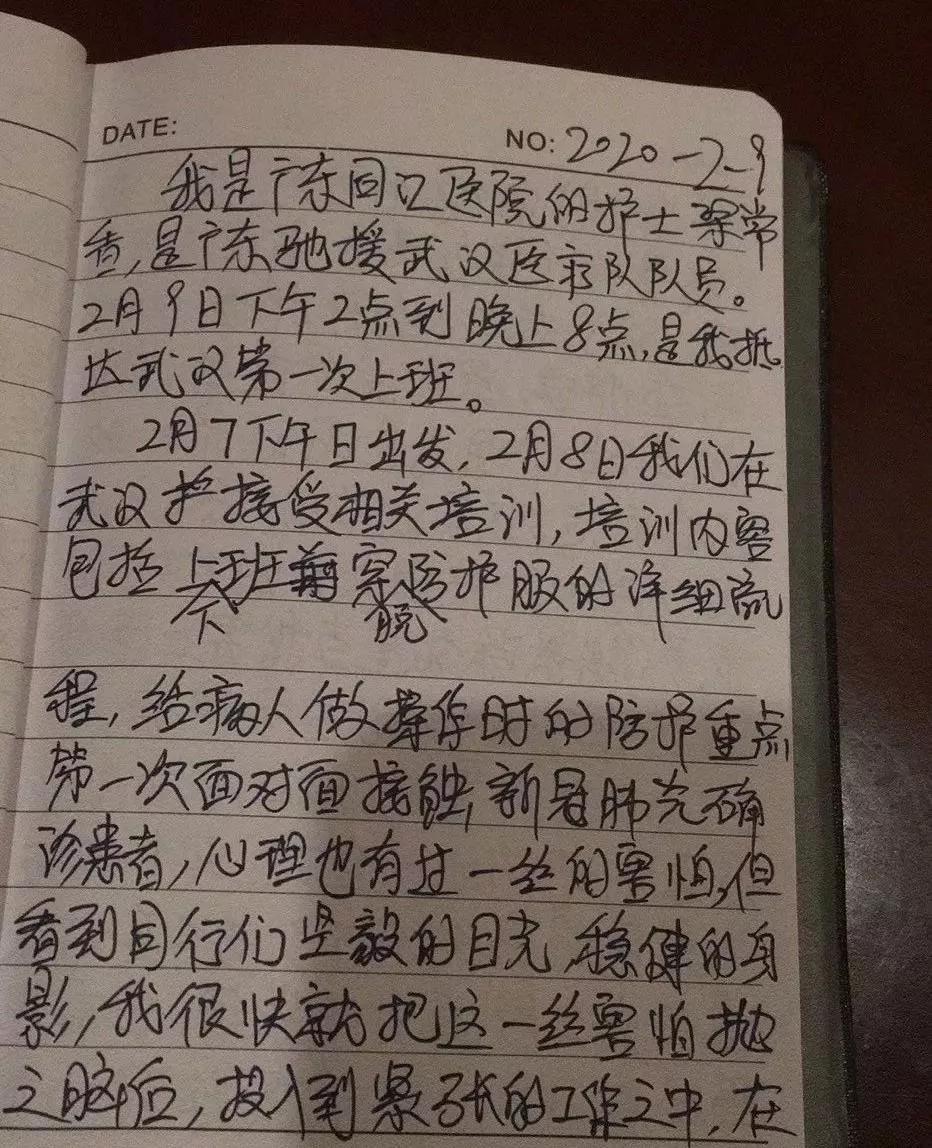 DATE: NO: 2020-2-9
我是广东同江医院的护士梁常
香,是广东驰援武汉医疗队队员。
2月9日下午2点到晚上8点,是我抵
达武汉第一次上班。
2月7下午日出发,2月8日我们在
武汉护接受相关培训,培训内容
包括上班前穿防护服的详细流
下 脱
程,给病人做操作时的防护重点
第一次面对面接触,新冠肺炎确
诊患者,心理也有过一丝的害怕,但
看到同行们坚毅的目光,稳健的身
影,我很快就把这一丝害怕抛
之脑后,投入到紧张的工作之中,在